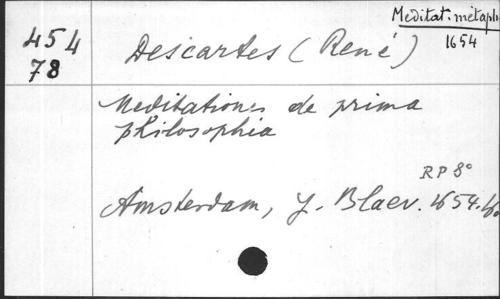 Meditat. métaph
1654
454
78
Descartes (René)
Meditationes de prima
philosophia
RP 8°
Amsterdam, J. Blaev. 1654.